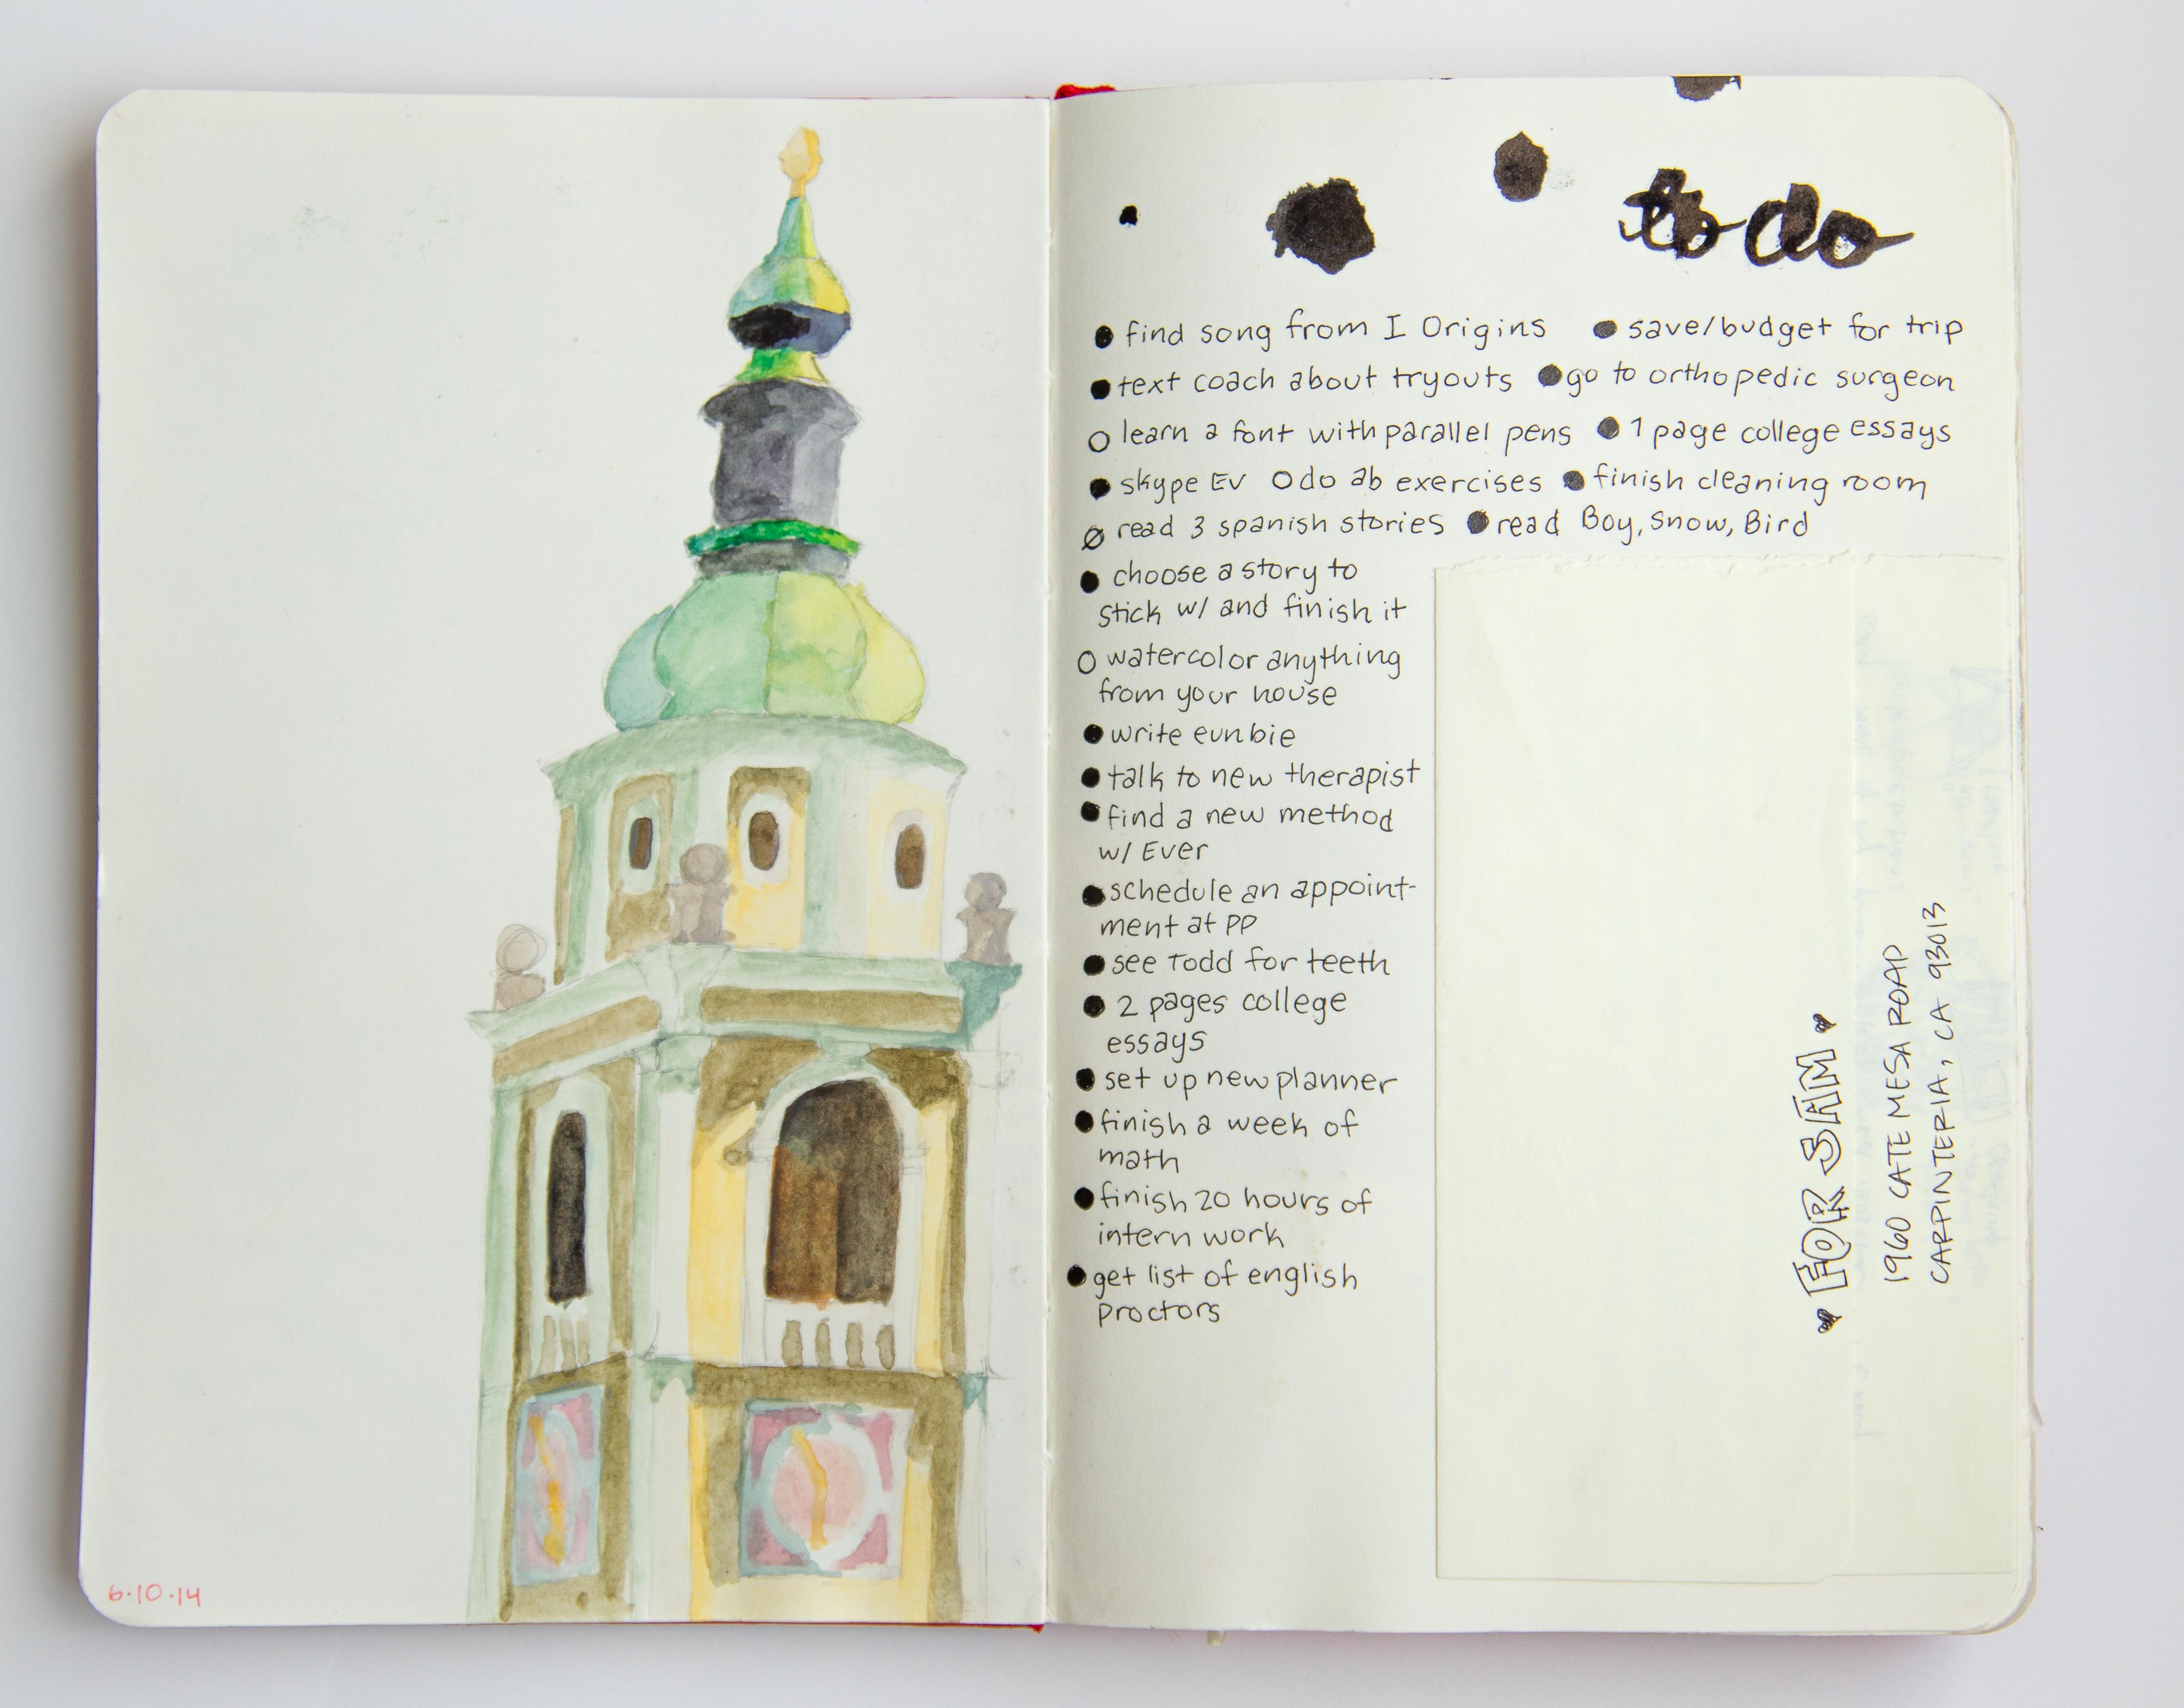 to do
● find song from I Origins ● save/budget for trip
● text coach about tryouts ● go to orthopedic surgeon
○ learn a font with parallel pens ● 1 page college essays
● skype Ev ○ do ab exercises ● finish cleaning room
∅ read 3 spanish stories ● read Boy, Snow, Bird
● choose a story to
stick w/ and finish it
○ watercolor anything
from your house
● write eunbie
● talk to new therapist
● find a new method
w/ Ever
● schedule an appoint-
ment at PP
● see Todd for teeth
● 2 pages college
essays
● set up new planner
● finish a week of
math
● finish 20 hours of
intern work
● get list of english
proctors
FOR SAM
1960 CATE MESA ROAD
CARPINTERIA, CA 93013
6.10.14